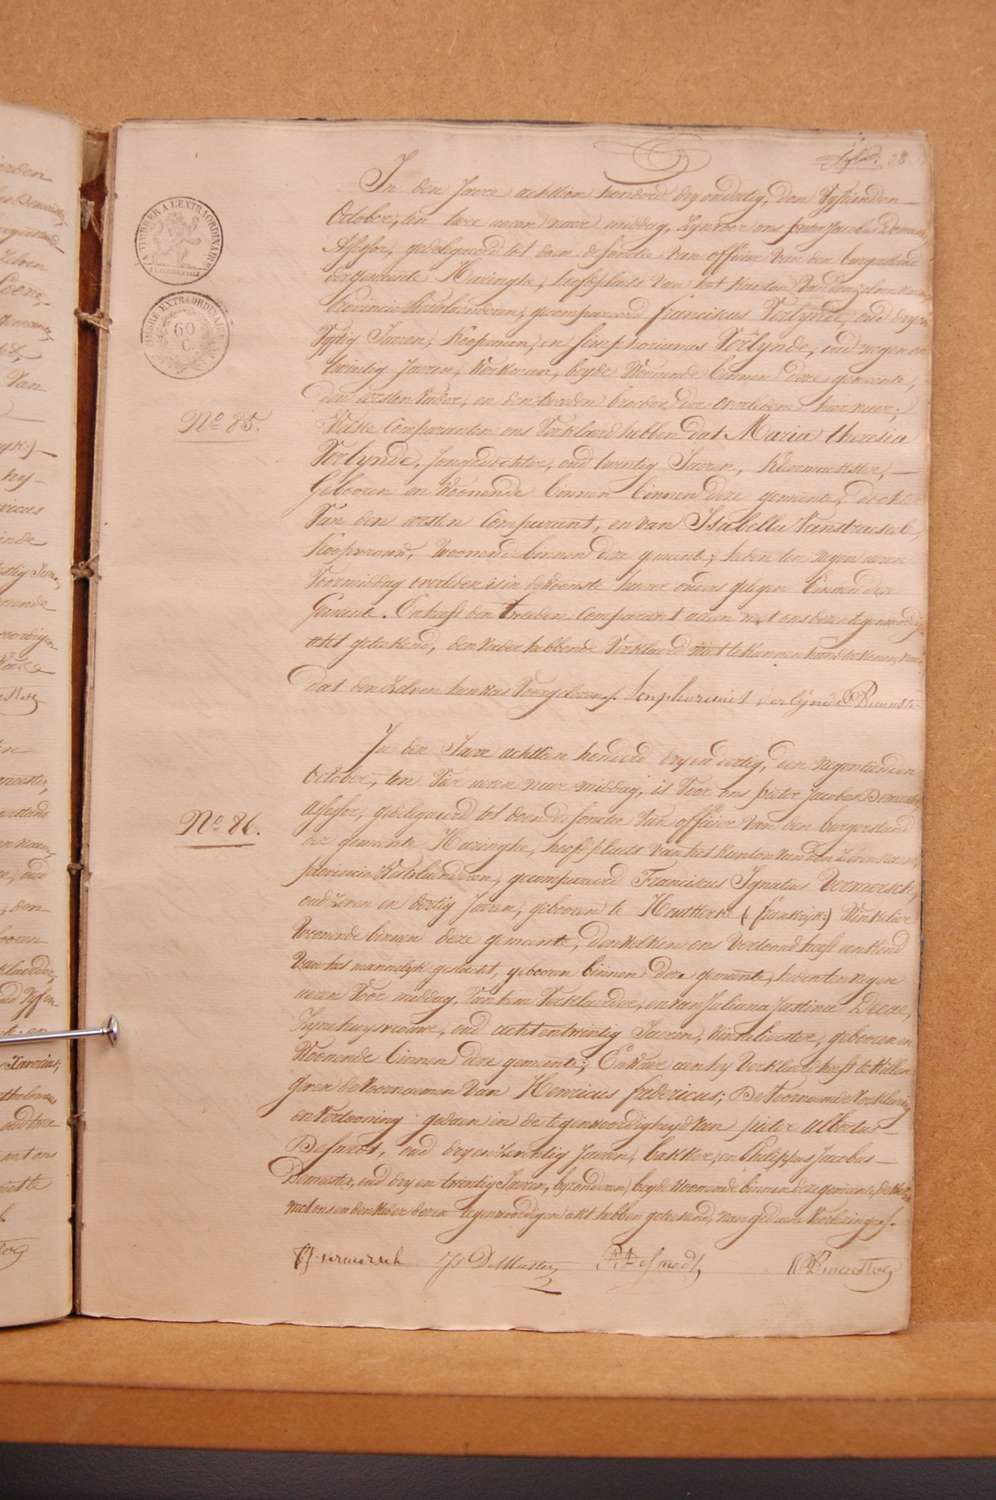 28
In den Jaere achttien honderd dry en dertig, den Vyftienden
October, ten twee uuren naer middag, Zyn voor ons pieter Jacobus
gedelegeerd tot doen de functie van officier van den burgerstand
der gemeente Haringhe, hoofdplaets van het kanton van
Provincie Westvlaenderen, gecompareerd franciscus Verlynde oud
Vyftig Jaeren, Koopman, en simphorianus Verlynde, oud negen en
twintig Jaeren, Werkman, beyde Woonende binnen deze gemeente,
den eersten Vader, en den tweeden broeder der overledene hier naer;
Welke Comparanten ons Verklaerd hebben dat Maria theresia
Verlynde, Jongedochter, oud twintig Jaeren,
Gebooren en Woonende binnen binnen deze gemeente, dochter
Van den eersten Comparant, en van Isabella Vanstraeseele,
woonende binnen deze gemeente, heden ten negen uuren
Voormiddag overleden is in de Woonste haerer ouders gelegen binnen deze
Gemeente. En heeft den tweeden Comparant alleen met ons deze tegenwoordige
akt geteekend, den vader hebbende Verklaerd niet te kunnen
dat den zelven hun was Voorgelezen. Simphorianus Verlynde
N.o 85.
In den Jaere achttien honderd dry en dertig, den negentienden
October, ten Vier uuren naer middag, is Voor ons pieter Jacobus
gedelegeerd tot doen de functie Van officier Van den burgerstand
der gemeente Haringhe, hoofdplaets Van het kanton van
provincie Westvlaenderen, gecompareerd Franciscus Ignatius Vermersch,
oud Zeven en dertig Jaeren, gebooren te Houtkerke (frankryk) Winkelier
Woonende binnen deze gemeente, den welken ons Vertoond heeft een kind
Van het mannelyk geslacht, gebooren binnen deze gemeente, heden ten negen
uuren Voor middag, Van hem Verklaerder, en van Juliana Justina
Zyne huysvrouwe, oud acht en twintig Jaeren, Winkelierster, gebooren en
Woonende binnen deze gemeente; En waer aen hy Verklaert heeft te Willen
geven de Voornaemen Van Henricus fredericus; De Voornoemde Verklaering
en Vertooning gedaen in de tegenwoordigheyd Van pieter Albertus
Desmedt, oud dry en twintig Jaeren, bakker, en Philippus Jacobus
Demeester, oud dry en twintig Jaeren, byzonderen, beyde Woonende binnen deze gemeente,
met ons en den Vader dezen tegenwoordigen akt hebben geteekend, naer gedaene Voorlezing.
N.o 86.
Vermersch Ph DeMeester P. A. Desmedt